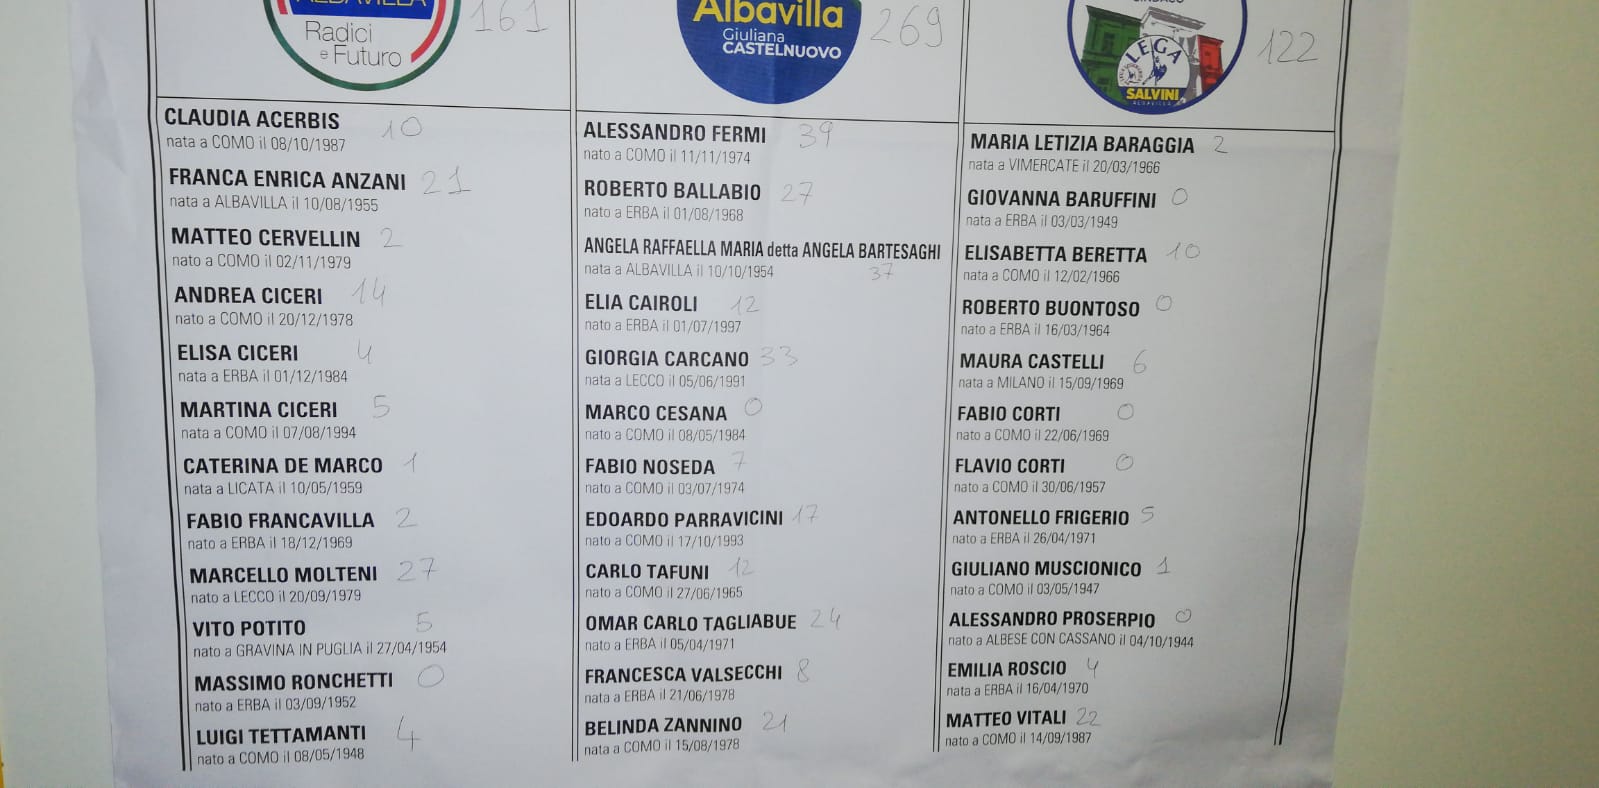 ALBAVILLA
Radici
e Futuro
161
Albavilla
Giuliana
CASTELNUOVO
269
SINDACO
LEGA
SALVINI
ALBAVILLA
122
CLAUDIA ACERBIS 10
nata a COMO il 08/10/1987
FRANCA ENRICA ANZANI 21
nata a ALBAVILLA il 10/08/1955
MATTEO CERVELLIN 2
nato a COMO il 02/11/1979
ANDREA CICERI 14
nato a COMO il 20/12/1978
ELISA CICERI 4
nata a ERBA il 01/12/1984
MARTINA CICERI 5
nata a COMO il 07/08/1994
CATERINA DE MARCO 1
nata a LICATA il 10/05/1959
FABIO FRANCAVILLA 2
nato a ERBA il 18/12/1969
MARCELLO MOLTENI 27
nato a LECCO il 20/09/1979
VITO POTITO 5
nato a GRAVINA IN PUGLIA il 27/04/1954
MASSIMO RONCHETTI 0
nato a ERBA il 03/09/1952
LUIGI TETTAMANTI 4
nato a COMO il 08/05/1948
ALESSANDRO FERMI 39
nato a COMO il 11/11/1974
ROBERTO BALLABIO 27
nato a ERBA il 01/08/1968
ANGELA RAFFAELLA MARIA detta ANGELA BARTESAGHI
nata a ALBAVILLA il 10/10/1954 37
ELIA CAIROLI 12
nato a ERBA il 01/07/1997
GIORGIA CARCANO 33
nata a LECCO il 05/06/1991
MARCO CESANA 0
nato a COMO il 08/05/1984
FABIO NOSEDA 7
nato a COMO il 03/07/1974
EDOARDO PARRAVICINI 17
nato a COMO il 17/10/1993
CARLO TAFUNI 12
nato a COMO il 27/06/1965
OMAR CARLO TAGLIABUE 24
nato a ERBA il 05/04/1971
FRANCESCA VALSECCHI 8
nata a ERBA il 21/06/1978
BELINDA ZANNINO 21
nata a COMO il 15/08/1978
MARIA LETIZIA BARAGGIA 2
nata a VIMERCATE il 20/03/1966
GIOVANNA BARUFFINI 0
nata a ERBA il 03/03/1949
ELISABETTA BERETTA 10
nata a COMO il 12/02/1966
ROBERTO BUONTOSO 0
nato a ERBA il 16/03/1964
MAURA CASTELLI 6
nata a MILANO il 15/09/1969
FABIO CORTI 0
nato a COMO il 22/06/1969
FLAVIO CORTI 0
nato a COMO il 30/06/1957
ANTONELLO FRIGERIO 5
nato a ERBA il 26/04/1971
GIULIANO MUSCIONICO 1
nato a COMO il 03/05/1947
ALESSANDRO PROSERPIO 0
nato a ALBESE CON CASSANO il 04/10/1944
EMILIA ROSCIO 4
nata a ERBA il 16/04/1970
MATTEO VITALI 22
nato a COMO il 14/09/1987